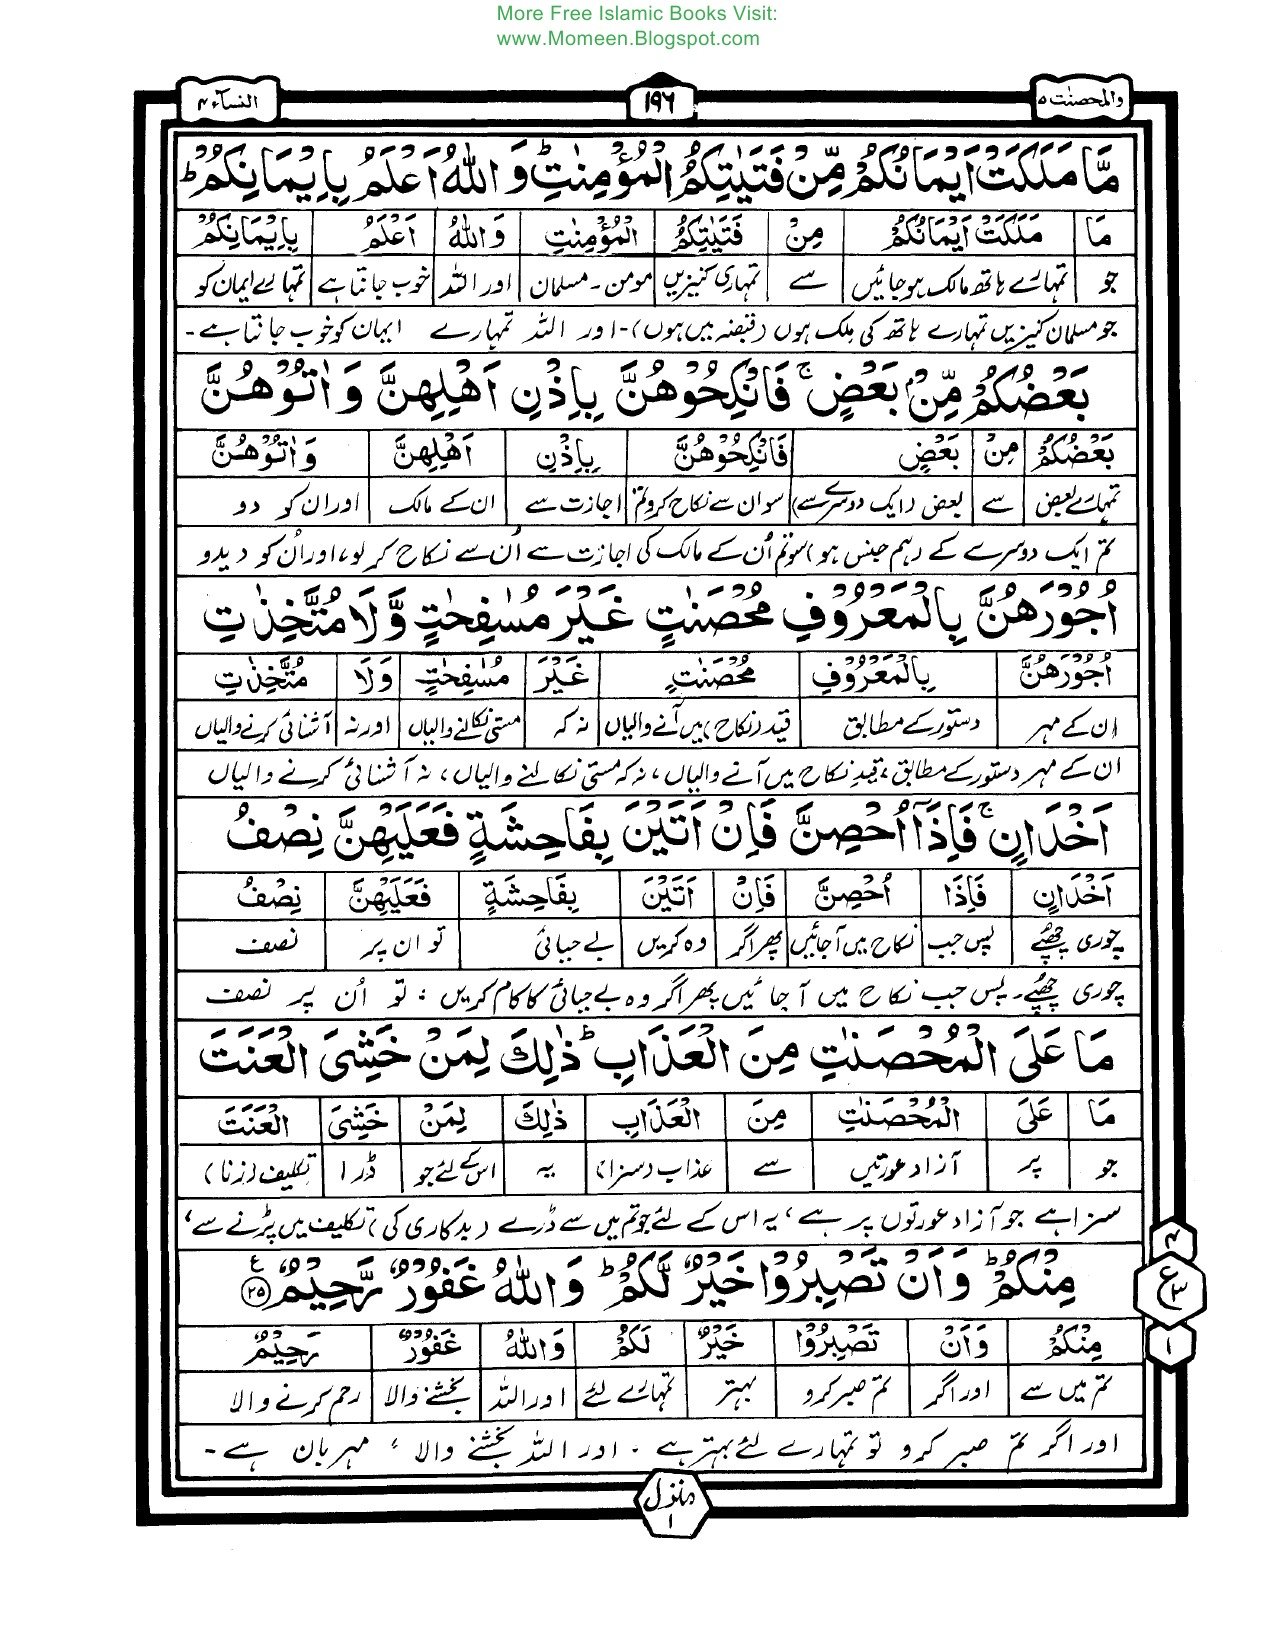 More Free Islamic Books Visit:
www.Momeen.Blogspot.com
والمحصنٰت ۵ ۱۹۶ النسآء ۴
مَّا مَلَكَتْ اَيْمَانُكُمْ مِّنْ فَتَيٰتِكُمُ الْمُؤْمِنٰتِ ؕ وَاللّٰهُ اَعْلَمُ بِاِيْمَانِكُمْ ؕ
مَا مَلَكَتْ اَيْمَانُكُمْ مِنْ فَتَيٰتِكُمُ الْمُؤْمِنٰتِ وَاللّٰهُ اَعْلَمُ بِاِيْمَانِكُمْ
جو تمہارے ہاتھ مالک ہو جائیں سے تمہاری کنیزیں مومن۔ مسلمان اور اللہ خوب جانتا ہے تمہارے ایمان کو
جو مسلمان کنیزیں تمہارے ہاتھ کی مِلک ہوں (قبضہ میں ہوں)۔ اور اللہ تمہارے ایمان کو خوب جانتا ہے۔
بَعْضُكُمْ مِّنْۢ بَعْضٍ ۚ فَانْكِحُوْهُنَّ بِاِذْنِ اَهْلِهِنَّ وَاٰتُوْهُنَّ
بَعْضُكُمْ مِنْ بَعْضٍ فَانْكِحُوْهُنَّ بِاِذْنِ اَهْلِهِنَّ وَاٰتُوْهُنَّ
تمہارے بعض سے بعض (ایک دوسرے سے) سو ان سے نکاح کرو تم اجازت سے ان کے مالک اور ان کو دو
تم ایک دوسرے کے (ہم جنس ہو) سو تم اُن کے مالک کی اجازت سے اُن سے نکاح کر لو، اور اُن کو دیدو
اُجُوْرَهُنَّ بِالْمَعْرُوْفِ مُحْصَنٰتٍ غَيْرَ مُسٰفِحٰتٍ وَّلَا مُتَّخِذٰتِ
اُجُوْرَهُنَّ بِالْمَعْرُوْفِ مُحْصَنٰتٍ غَيْرَ مُسٰفِحٰتٍ وَلَا مُتَّخِذٰتِ
ان کے مہر دستور کے مطابق قید (نکاح) میں آنے والیاں نہ کہ مستی نکالنے والیاں اور نہ آشنائی کرنے والیاں
ان کے مہر دستور کے مطابق، قید نکاح میں آنے والیاں، نہ کہ مستی نکالنے والیاں، نہ آشنائی کرنے والیاں
اَخْدَانٍ ۚ فَاِذَآ اُحْصِنَّ فَاِنْ اَتَيْنَ بِفَاحِشَةٍ فَعَلَيْهِنَّ نِصْفُ
اَخْدَانٍ فَاِذَا اُحْصِنَّ فَاِنْ اَتَيْنَ بِفَاحِشَةٍ فَعَلَيْهِنَّ نِصْفُ
چوری چھپے پس جب نکاح میں آجائیں پھر اگر وہ کریں بے حیائی تو ان پر نصف
چوری چھپے۔ پس جب نکاح میں آ جائیں پھر اگر وہ بے حیائی کا کام کریں، تو اُن پر نصف
مَا عَلَى الْمُحْصَنٰتِ مِنَ الْعَذَابِ ؕ ذٰلِكَ لِمَنْ خَشِيَ الْعَنَتَ
مَا عَلَى الْمُحْصَنٰتِ مِنَ الْعَذَابِ ذٰلِكَ لِمَنْ خَشِيَ الْعَنَتَ
جو پر آزاد عورتیں سے عذاب (سزا) یہ اس کے لئے جو ڈرا تکلیف (زنا)
سزا ہے جو آزاد عورتوں پر ہے، یہ اس کے لئے جو تم میں سے ڈرے (بدکاری کی) تکلیف میں پڑنے سے،
مِنْكُمْ ؕ وَاَنْ تَصْبِرُوْا خَيْرٌ لَّكُمْ ؕ وَاللّٰهُ غَفُوْرٌ رَّحِيْمٌ ۲۵ ع
مِنْكُمْ وَاَنْ تَصْبِرُوْا خَيْرٌ لَكُمْ وَاللّٰهُ غَفُوْرٌ رَحِيْمٌ
تم میں سے اور اگر تم صبر کرو بہتر تمہارے لئے اور اللہ بخشنے والا رحم کرنے والا
اور اگر تم صبر کرو تو تمہارے لئے بہتر ہے۔ اور اللہ بخشنے والا، مہربان ہے۔
۴
ع ۳
۱
منزل
۱